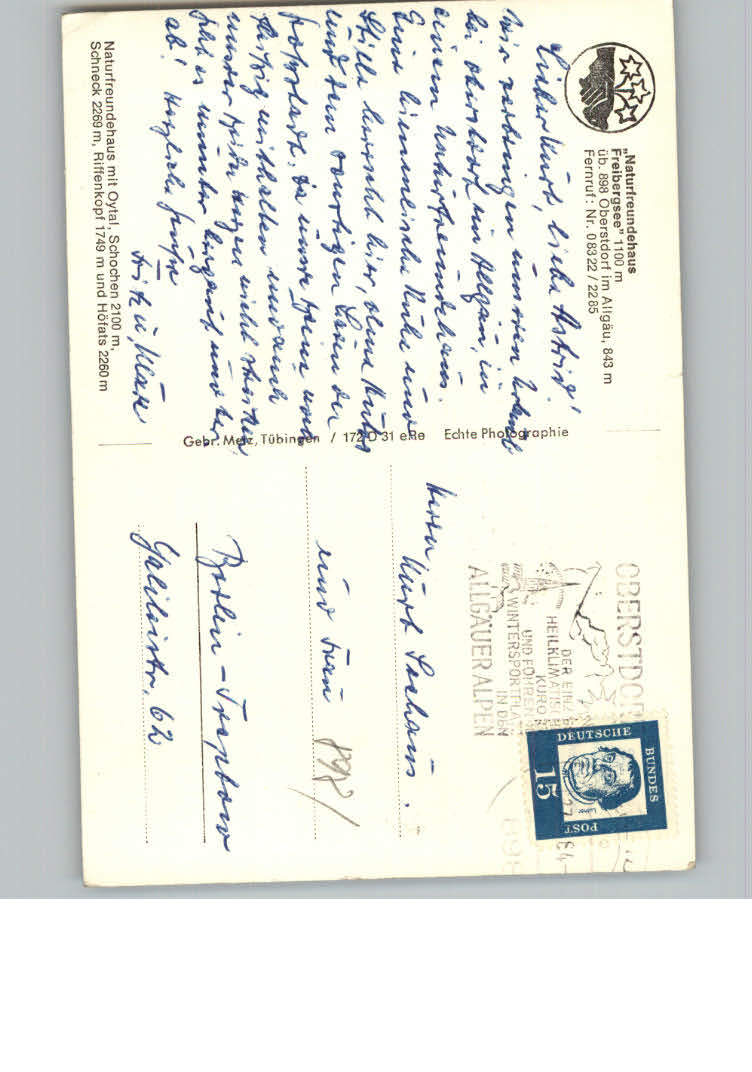 „Naturfreundehaus
Freibergsee" 1100 m
üb. 898 Oberstdorf im Allgäu, 843 m
Fernruf: Nr. 08322/2285
Lieber Kurt, liebe Astrid!
Wir verbringen unseren Urlaub
bei Oberstdorf im Allgäu, in
einem Naturfreundehaus.
Eine himmlische Ruhe und
Stille herrscht hier, ohne Autos
und dem sonstigen Lärm der
Großstadt. Da unsere Beine noch
fleißig mithalten und auch
unser
geht es munter bergauf und ber
ab! Herzliche Grüße
Fritz u. Kläre
Naturfreundehaus mit Oytal, Schochen 2100 m,
Schneck 2269 m, Riffenkopf 1749 m und Höfats 2260 m
Gebr. Metz, Tübingen / 172 O 31 eRe Echte Photographie
OBERSTDORF
DER EINZ
HEILKLIMATISCHE
KURO
UND FÜHREN
WINTERSPORTPLA
IN DEN
ALLGÄUER ALPEN
27
64
DEUTSCHE
BUNDES
POST
15
Luther
Herrn
Kurt
und Frau
898/
Berlin-Treptow
Galileistr. 62